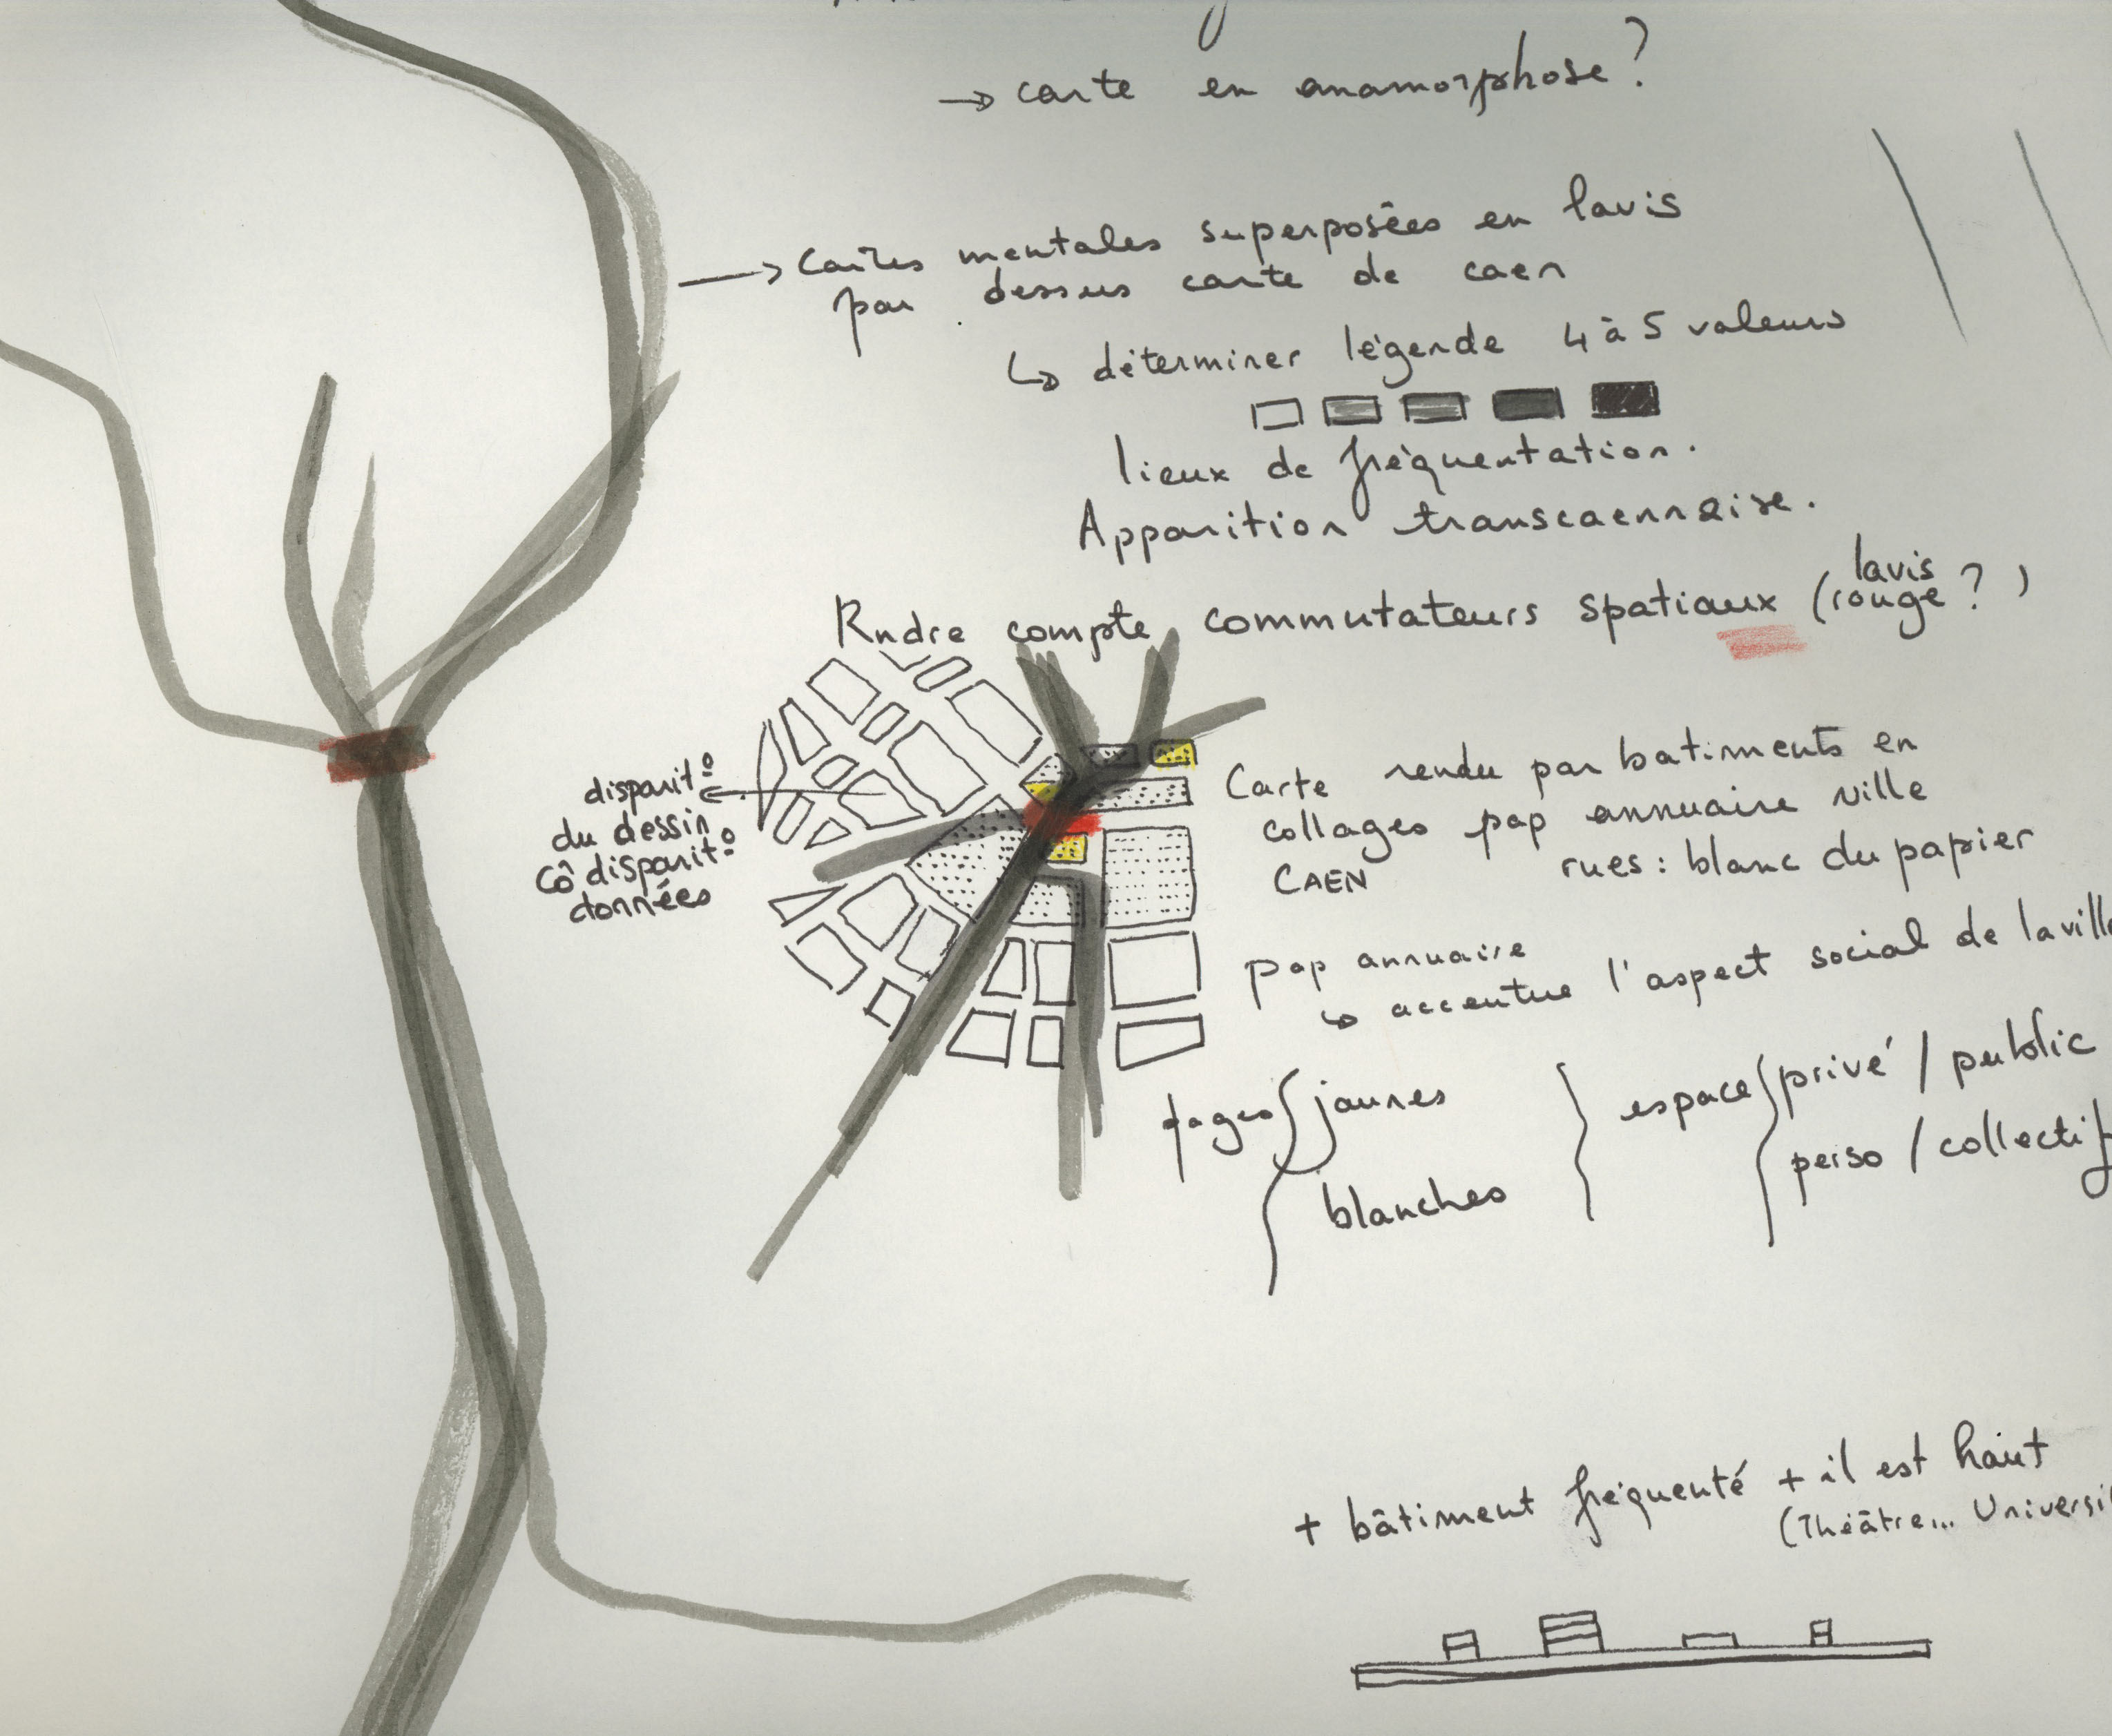 → carte en anamorphose ?
→ Cartes mentales superposées en lavis
par dessus carte de caen
↳ déterminer légende 4 à 5 valeurs
lieux de fréquentation.
Apparition transcaennaise.
lavis
Rndre compte commutateurs spatiaux (rouge ?)
disparit°
du dessin
cô disparit°
données
Carte rendu par batiments en
collages pap annuaire ville
CAEN rues : blanc du papier
pap annuaire
↳ accentue l'aspect social de la ville
pages { jaunes } espace { privé / public
blanches perso / collectif
+ bâtiment fréquenté + il est haut
(Théâtre... Universi